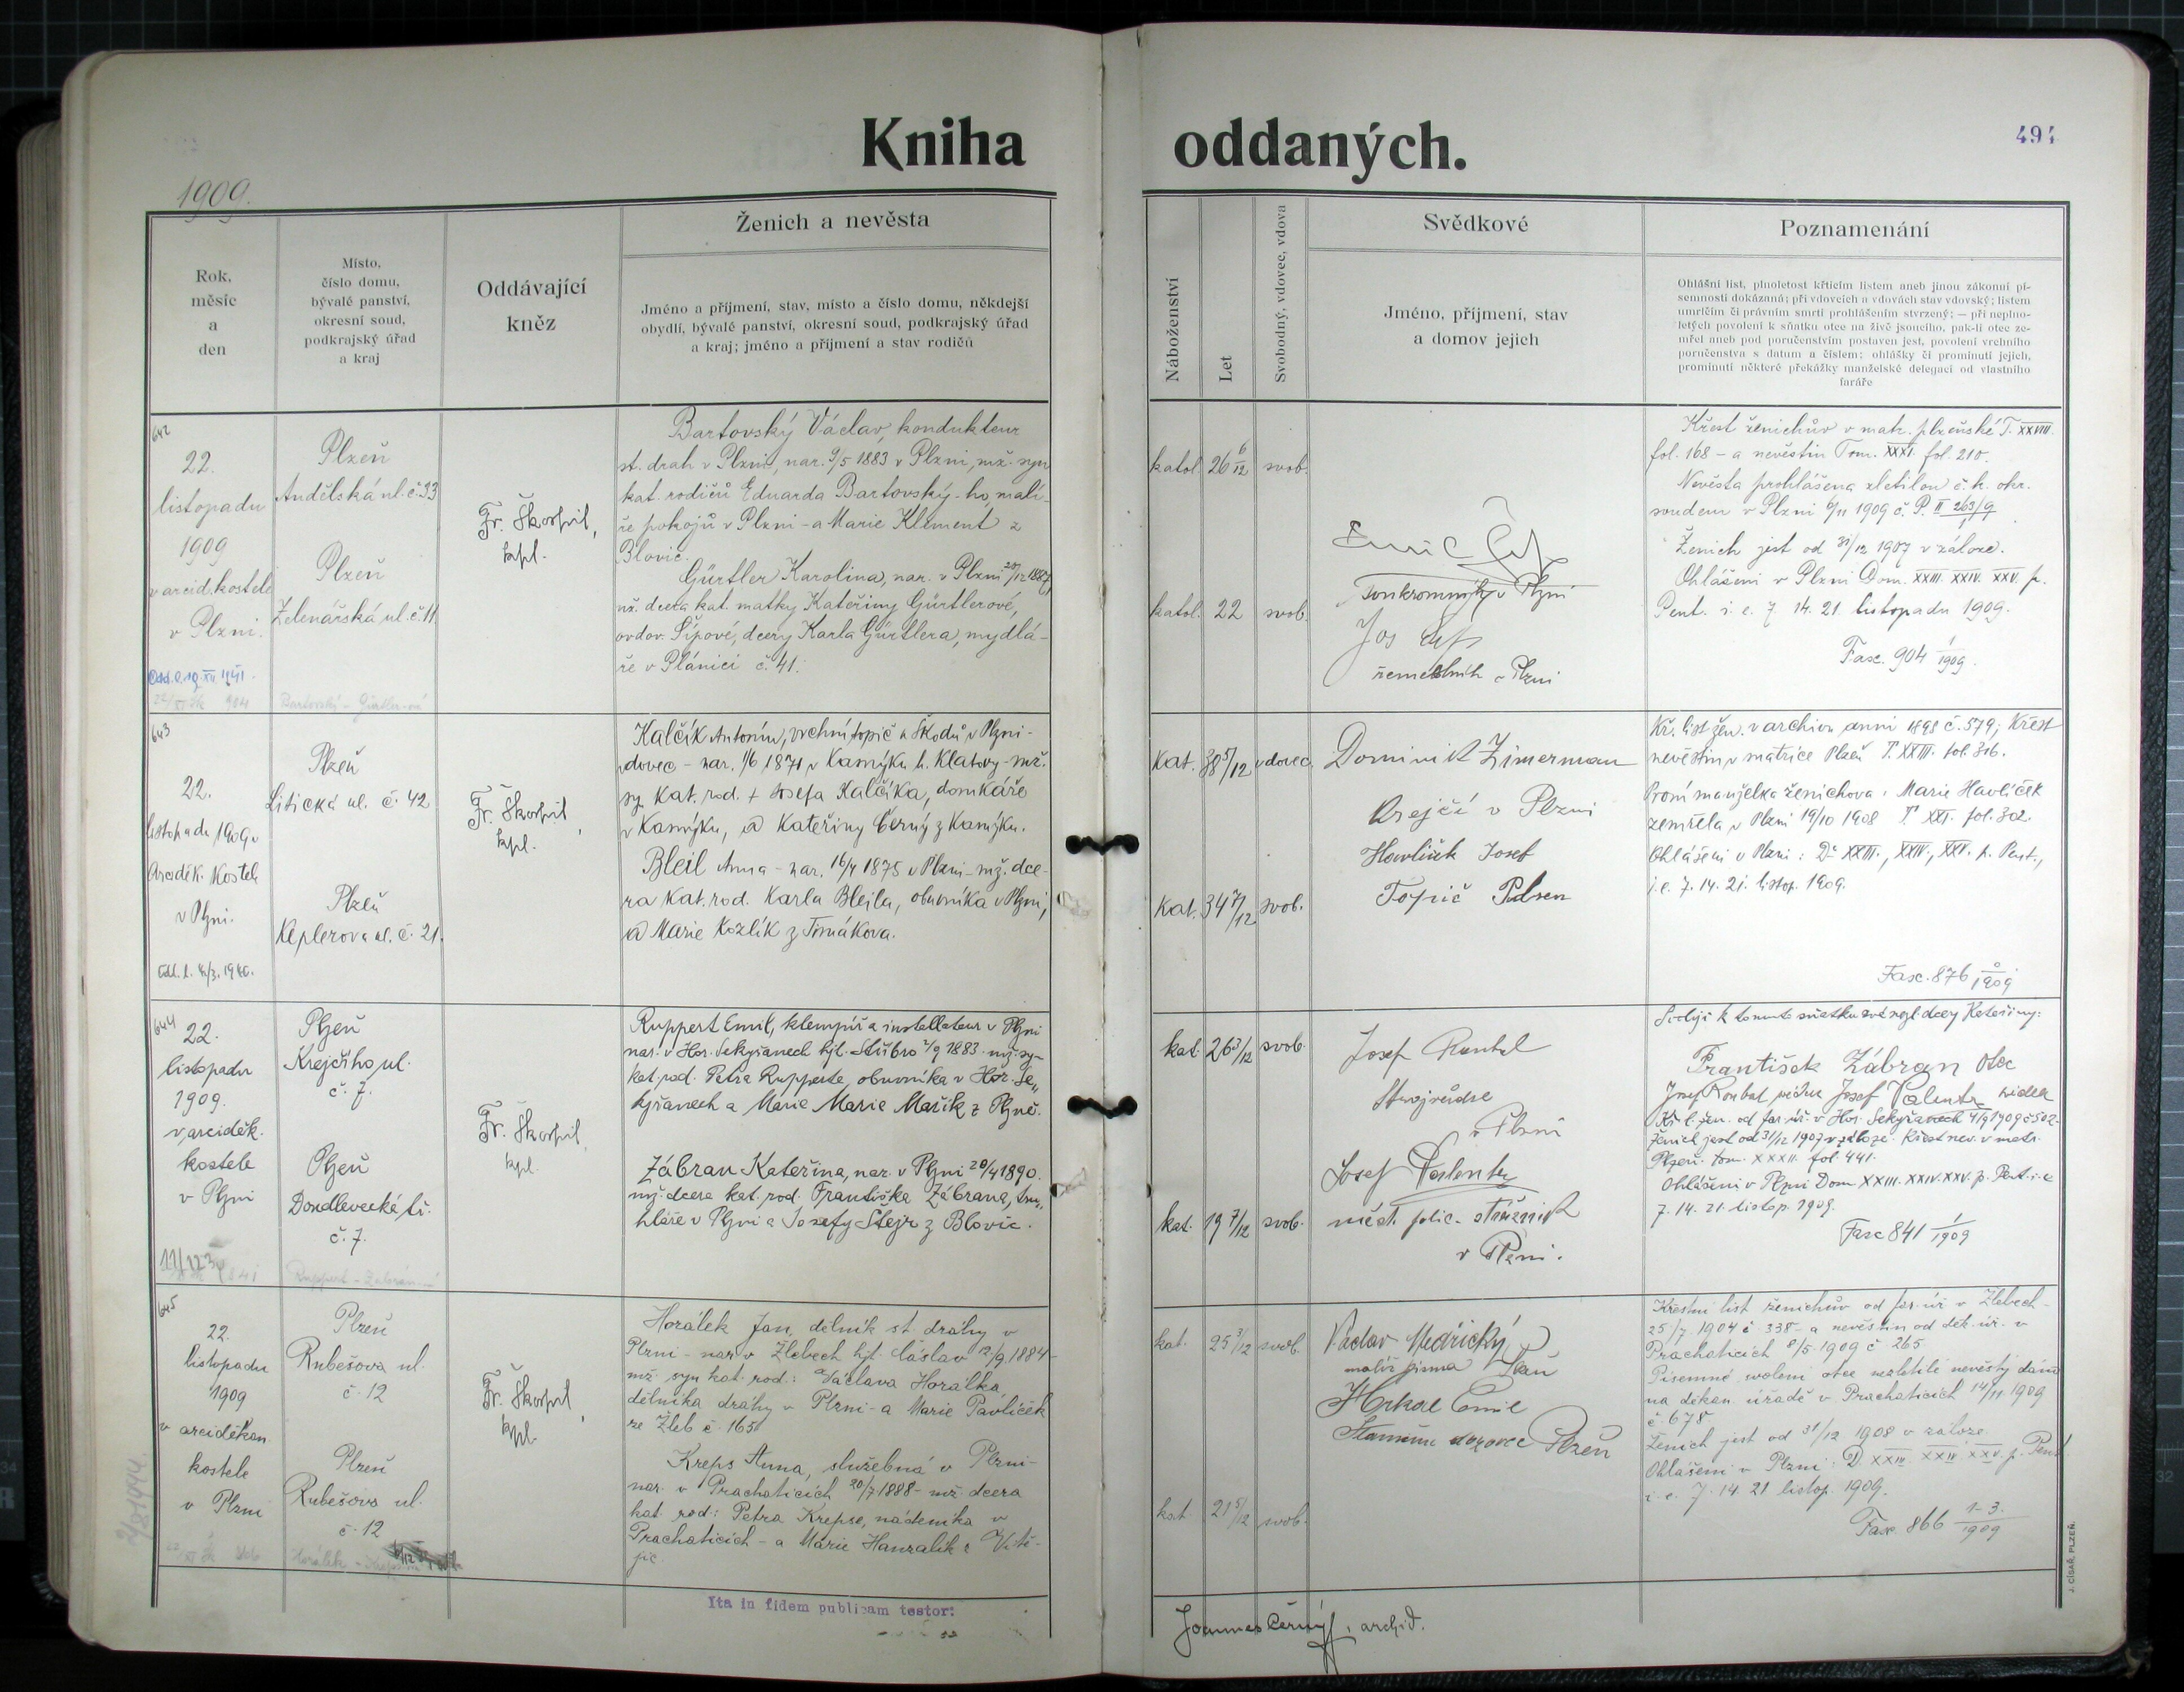 Kniha oddaných.
494
1909.
Rok, měsíc a den
Místo, číslo domu, bývalé panství, okresní soud, podkrajský úřad a kraj
Oddávající kněz
Ženich a nevěsta
Jméno a příjmení, stav, místo a číslo domu, někdejší
obydlí, bývalé panství, okresní soud, podkrajský úřad
a kraj; jméno a příjmení a stav rodičů
Náboženství
Let
Svobodný, vdovec, vdova
Svědkové
Jméno, příjmení, stav
a domov jejich
Poznamenání
Ohlášní list, plnoletost křticím listem aneb jinou zákonní pí-
semností dokázaná; při vdovcích a vdovách stav vdovský; listem
umrlčím či právním smrti prohlášením stvrzený; — při neplno-
letých povolení k sňatku otce na živě jsoucího, pak-li otec ze-
mřel aneb pod poručenstvím postaven jest, povolení vrchního
poručenstva s datum a číslem; ohlášky či prominutí jejich,
prominutí některé překážky manželské delegací od vlastního
faráře
642
22.
listopadu
1909
v arcid. kostele
v Plzni.
Plzeň
Andělská ul. č. 33
Plzeň
Zelenářská ul. č. 11
Fr. Škorpil,
kpl.
Bartovský Václav, kondukteur
st. drah v Plzni, nar. 9/5 1883 v Plzni, mž. syn
kat. rodičů Eduarda Bartovský-ho, malí-
ře pokojů v Plzni - a Marie Kliment z
Blovic.
Gürtler Karolina, nar. v Plzni 1887
nž. dcera kat. matky Kateřiny Gürtlerové,
ovdov. Šípové, dcery Karla Gürtlera, mydlá-
ře v Plánici č. 41.
katol. 26 6/12 svob.
katol. 22 svob.
soukromník v Plzni
Jos
řemeslník v Plzni
Křest ženichův v matr. plzeňské T. XXVIII.
fol. 168 - a nevěstin Tom. XXXI. fol. 210.
Nevěsta prohlášena zletilou c. k. okr.
soudem v Plzni 6/11 1909 č. P. II 263/9
Ženich jest od 31/12 1907 v záloze.
Ohlášeni v Plzni Dom. XXIII. XXIV. XXV. p.
Pent. i. e. 7. 14. 21. listopadu 1909.
Fasc. 904 1/1909.
643
22.
listopadu 1909 v
Arciděk. kostele
v Plzni.
Plzeň
Litická ul. č. 42
Plzeň
Keplerova ul. č. 21.
Fr. Škorpil,
kpl.
Kalčík Antonín, vrchní topič u Škodů v Plzni -
vdovec - nar. 1/6 1871 v Kamýku h. Klatovy - mž.
sy. kat. rod. + Josefa Kalčíka, domkáře
v Kamýku, a Kateřiny Černý z Kamýku.
Bleil Anna - nar. 16/4 1875 v Plzni - mž. dce-
ra kat. rod. Karla Bleila, obuvníka v Plzni,
a Marie Kozlík z Tomákova.
Kat. 38 5/12 vdovec
Kat. 34 7/12 svob.
Dominik Zimerman
Krejčí v Plzni
Havlíček Josef
Topič Pilsen
Kř. list žen. v archivu anni 1898 č. 579; Křest
nevěstin v matrice Plzeň T. XXIII. fol. 316.
První manželka ženichova: Marie Havlíček
zemřela v Plzni 19/10 1908 T. XXI. fol. 302.
Ohlášeni v Plzni: D. XXIII., XXIV., XXV. p. Pent.,
i. e. 7. 14. 21. listop. 1909.
Fasc. 876 1909
644
22.
listopadu
1909.
v arciděk.
kostele
v Plzni
Plzeň
Krejčího ul.
č. 7.
Plzeň
Doudlevecká tř.
č. 7.
Fr. Škorpil,
kpl.
Ruppert Emil, klempíř a installateur v Plzni
nar. v Hor. Sekyřanech hjt. Stříbro 2/9 1883 mž. sy-
kat. rod. Petra Rupperta, obuvníka v Hor. Se„
kyřanech a Marie Marie Mařík z Plzně.
Zábran Kateřina, nar. v Plzni 20/4 1890.
mž. dcera kat. rod. Františka Zábrana, tru„
hláře v Plzni a Josefy Štejr z Blovic.
kat. 26 3/12 svob.
kat. 19 7/12 svob.
Josef
Strojvůdce
v Plzni
Josef Valenta
měst. polic. strážník
v Plzni.
Svoluji k tomuto sňatku své nezl. dcery Kateřiny:
František Zábran Otec
Josef Valenta
Kř. l. žen. od far. úř. v Hor. Sekyřanech 4/9 1909 č 502
Ženich jest od 31/12 1907 v záloze. Křest nev. v matr.
Plzeň. tom. XXXII. fol. 441.
Ohlášeni v Plzni Dom XXIII. XXIV. XXV. p. Pent. i. e.
7. 14. 21. listop. 1909.
Fasc 841 1/1909
645
22.
listopadu
1909
v arciděkan.
kostele
v Plzni
Plzeň
Rubešova ul.
č. 12
Plzeň
Rubešova ul.
č. 12
Fr. Škorpil,
kpl.
Horálek Jan, dělník st. dráhy v
Plzni - nar. v Žlebech hjt. Čáslav 12/9 1884 -
mž. syn kat. rod.: Václava Horálka,
dělníka dráhy v Plzni - a Marie Pavlíček
ze Žleb č. 165.
Kreps Anna, služebná v Plzni -
nar. v Prachaticích 20/7 1888 - mž. dcera
kat. rod: Petra Krepse, nádeníka v
Prachaticích - a Marie Hanzalík z Vitě-
jic
kat. 25 3/12 svob.
kat. 21 5/12 svob.
Václav Medřický
malíř písma
Emil
dozorce Plzeň
Křestní list ženichův od far. úř. v Žlebech -
25/7 1904 č. 338 - a nevěstin od děk. úř. v
Prachaticích 8/5 1909 č. 265
Písemné svolení otce nezletilé nevěsty dáno
na děkan. úřadě v Prachaticích 14/11 1909
č. 678
Ženich jest od 31/12 1908 v záloze.
Ohlášeni v Plzni: D. XXIII. XXIV. XXV. p. Pent
i. e. 7. 14. 21 listop. 1909.
Fasc. 866 1-3./1909
2/2 1944.
Ita in fidem publicam testor:
Joannes Černý, archid.
J. CÍSAŘ, PLZEŇ.